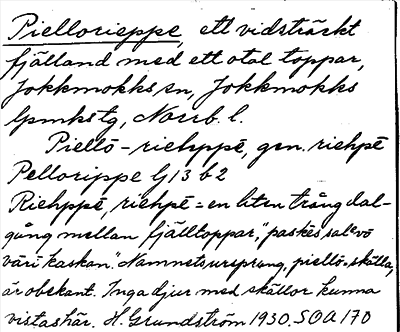 Piellorieppe, ett vidsträckt
fjälland med ett otal toppar,
Jokkmokks sn, Jokkmokks
lpmkstg, Norrb. l.
Piellō-riehppē, gen. riehpē
Pellorippe G 13 b 2
Riehppē, riehpē = en liten trång dal-
gång mellan fjälltoppar, "
väri kaskan". Namnets ursprung, piellō = skälla,
är obekant. Inga djur med skällor kunna
vistas här. H. Grundström 1930. SOA 170